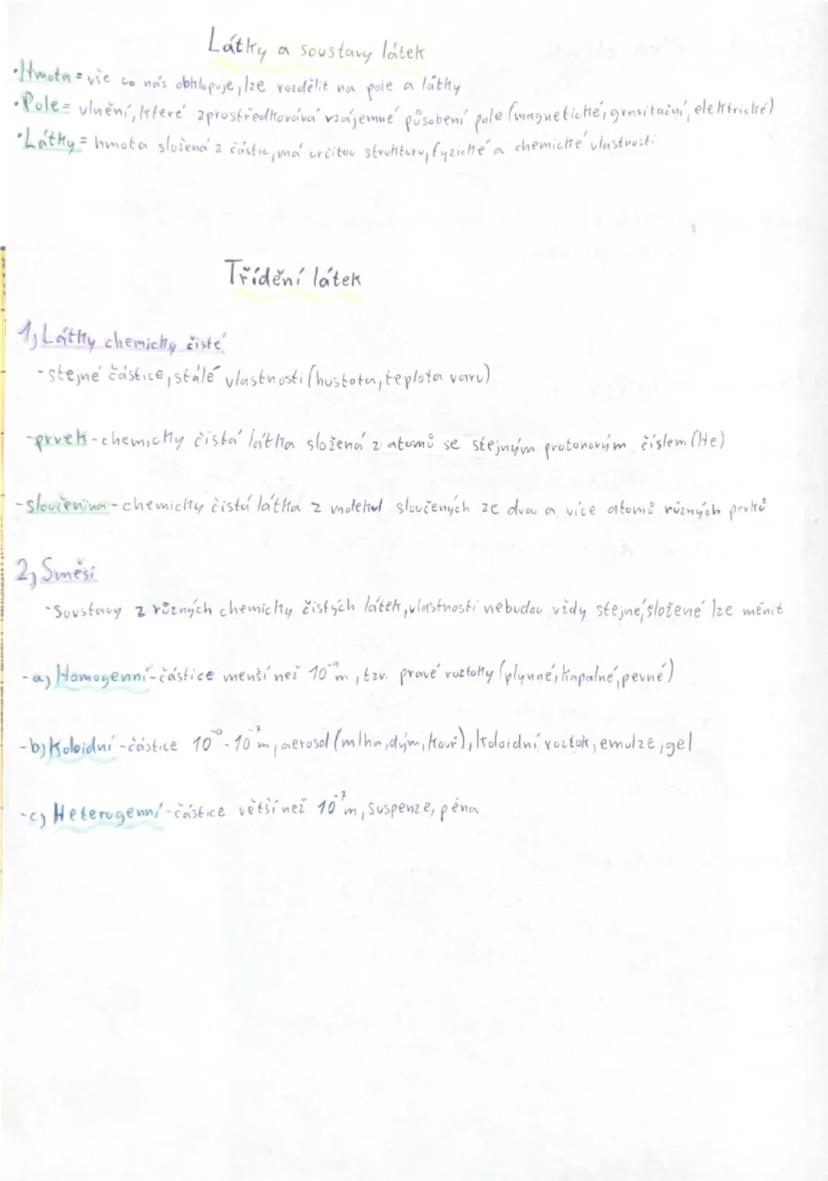 Látky a soustavy látek
•Hmota = vše co nás obklopuje, lze rozdělit na pole a látky
•Pole = vlnění, které zprostředkovává vzájemné působení pole (magnetické, gravitační, elektrické)
•Látky = hmota složená z částic, má určitou strukturu, fyzické a chemické vlastnosti
Třídění látek
1, Látky chemicky čisté
- stejné částice, stálé vlastnosti (hustota, teplota varu)
-prvek - chemicky čistá látka složená z atomů se stejným protonovým číslem (He)
-sloučenina - chemicky čistá látka z molekul sloučených ze dvou a více atomů různých prvků
2, Směsi
-Soustavy z různých chemicky čistých látek, vlastnosti nebudou vždy stejné, složené lze měnit
-a, Homogenní - částice menší než 10⁻⁹m, tzv. pravé roztoky (plynné, kapalné, pevné)
-b, Koloidní - částice 10⁻⁹ - 10⁻⁷m, aerosol (mlha, dým, kouř), koloidní roztok, emulze, gel
-c, Heterogenní - částice větší než 10⁻⁷m, suspenze, pěna